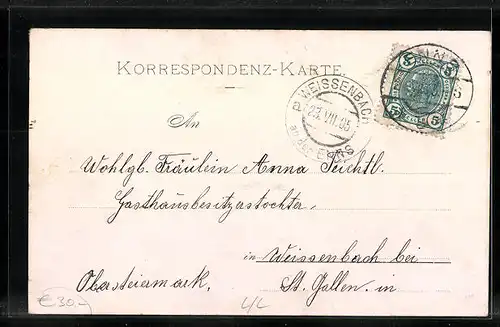 KORRESPONDENZ-KARTE.
WEISSENBACH
23.VIII.05
an der ENNS
5 5
5 5
An
Wohlgb. Fräulein Anna Feichtl.
Gasthausbesitzerstochter.
in Weissenbach bei
Obersteiermark. St. Gallen. in
€30.-
L/L